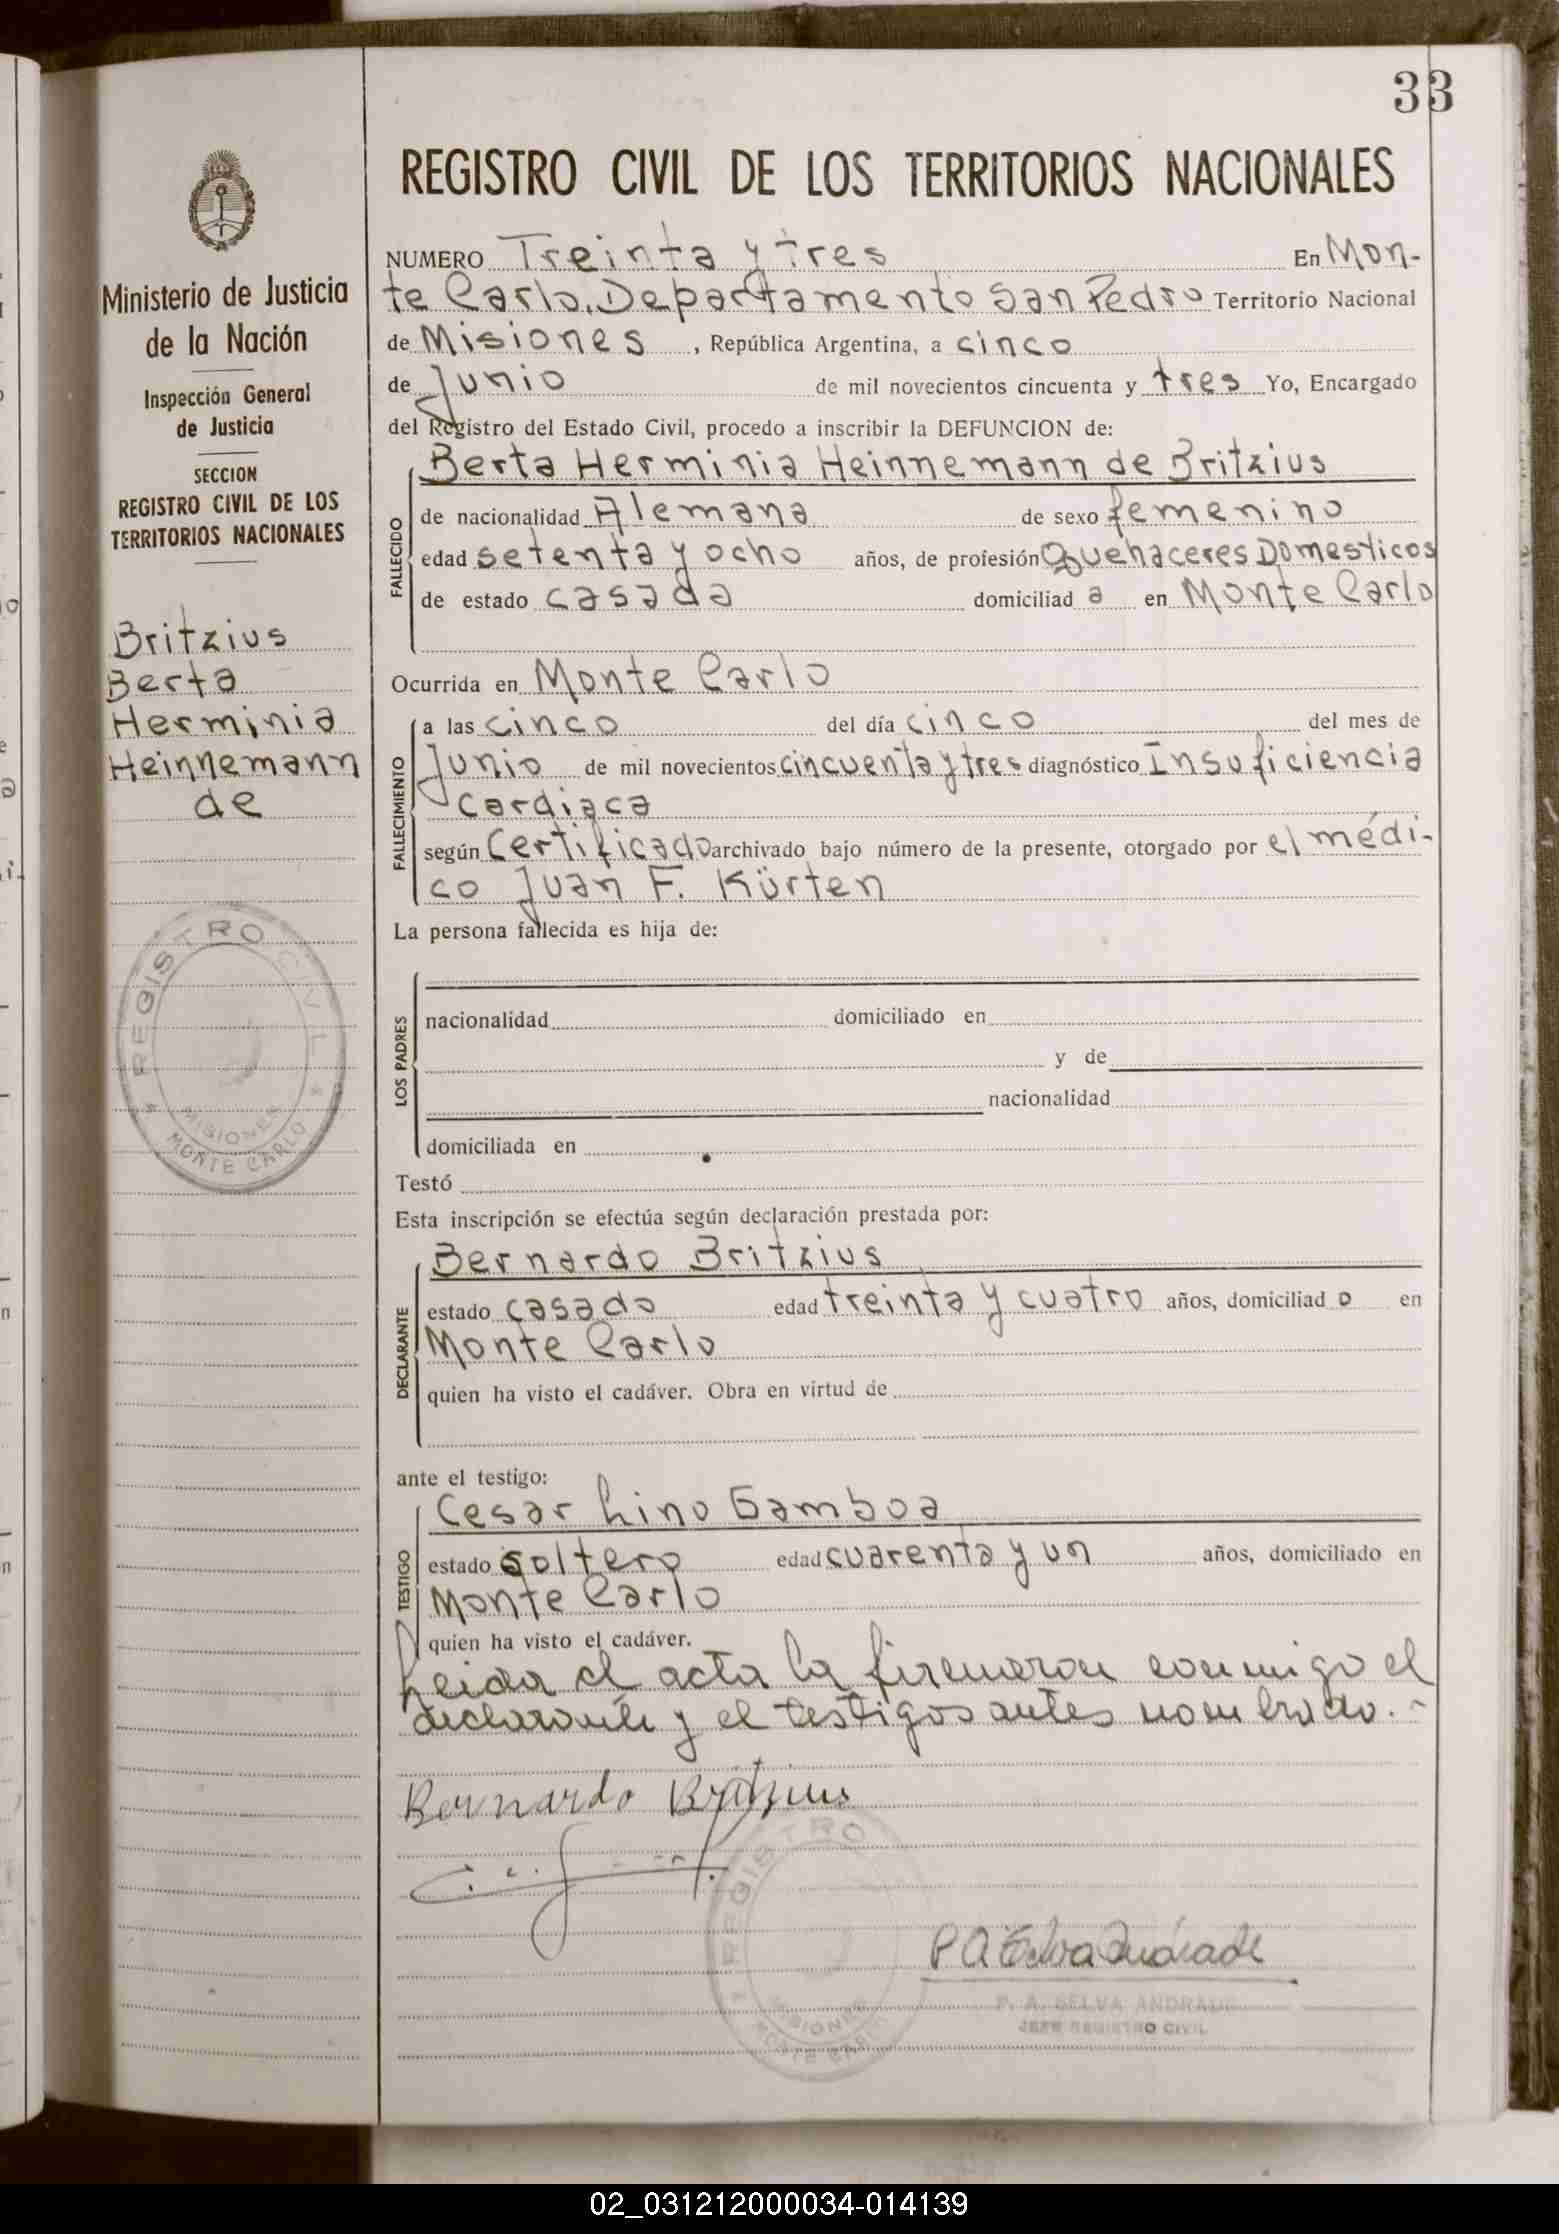 33
REGISTRO CIVIL DE LOS TERRITORIOS NACIONALES
Ministerio de Justicia
de la Nación
Inspección General
de Justicia
SECCION
REGISTRO CIVIL DE LOS
TERRITORIOS NACIONALES
Britzius
Berta
Herminia
Heinnemann
de
REGISTRO CIVIL
MISIONES
MONTE CARLO
NUMERO Treinta y tres En Mon-
te Carlo, Departamento San Pedro Territorio Nacional
de Misiones, República Argentina, a cinco
de Junio de mil novecientos cincuenta y tres Yo, Encargado
del Registro del Estado Civil, procedo a inscribir la DEFUNCION de:
FALLECIDO
Berta Herminia Heinnemann de Britzius
de nacionalidad Alemana de sexo femenino
edad setenta y ocho años, de profesión Quehaceres Domesticos
de estado casada domiciliad a en Monte Carlo
Ocurrida en Monte Carlo
FALLECIMIENTO
a las cinco del día cinco del mes de
Junio de mil novecientos cincuenta y tres diagnóstico Insuficiencia
cardiaca
según Certificado archivado bajo número de la presente, otorgado por el médi-
co Juan F. Kürten
La persona fallecida es hija de:
LOS PADRES
nacionalidad domiciliado en
y de
nacionalidad
domiciliada en
Testó
Esta inscripción se efectúa según declaración prestada por:
DECLARANTE
Bernardo Britzius
estado casado edad treinta y cuatro años, domiciliad o en
Monte Carlo
quien ha visto el cadáver. Obra en virtud de
ante el testigo:
TESTIGO
Cesar Lino Gamboa
estado soltero edad cuarenta y un años, domiciliado en
Monte Carlo
quien ha visto el cadáver.
Leida el acta la firmaron conmigo el
declarante y el testigos antes nombrado.-
Bernardo Britzius
REGISTRO
MISIONES
MONTE CARLO
P A Selva Andrade
P. A. SELVA ANDRADE
JEFE REGISTRO CIVIL
02_031212000034-014139